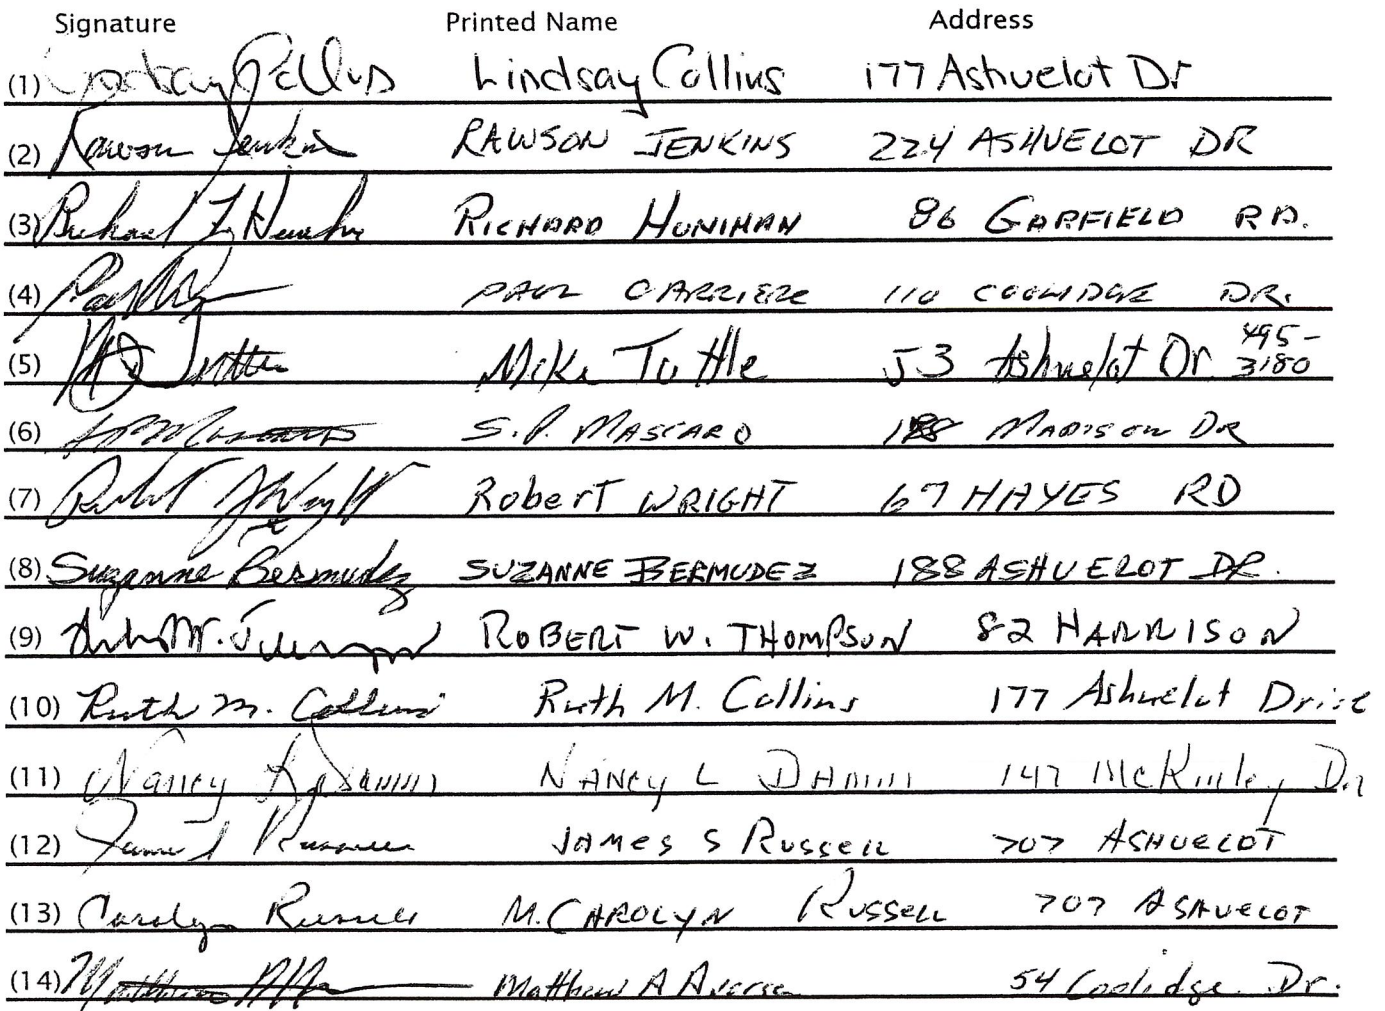 Signature Printed Name Address
(1) Lindsay Collins Lindsay Collins 177 Ashuelot Dr
(2) Rawson Jenkins RAWSON JENKINS 224 ASHUELOT DR
(3) Richard RICHARD HUNIHAN 86 GARFIELD RD.
(4) Paul PAUL CARRIERE 110 COOLIDGE DR.
(5) Tuttle Mike Tuttle 53 Ashuelot Dr. 495-
3180
(6) S.P. MASCARO MADISON DR
(7) Robert Wright Robert WRIGHT 67 HAYES RD
(8) Suzanne Bermudez SUZANNE BERMUDEZ 188 ASHUELOT DR.
(9) ROBERT W. THOMPSON 82 HARRISON
(10) Ruth M. Collins Ruth M. Collins 177 Ashuelot Drive
(11) Nancy L NANCY L 147 McKinley Dr
(12) James S Russell JAMES S RUSSELL 707 ASHUELOT
(13) Carolyn Russell M. CAROLYN RUSSELL 707 ASHUELOT
(14) Matthew Matthew A 54 Coolidge Dr.